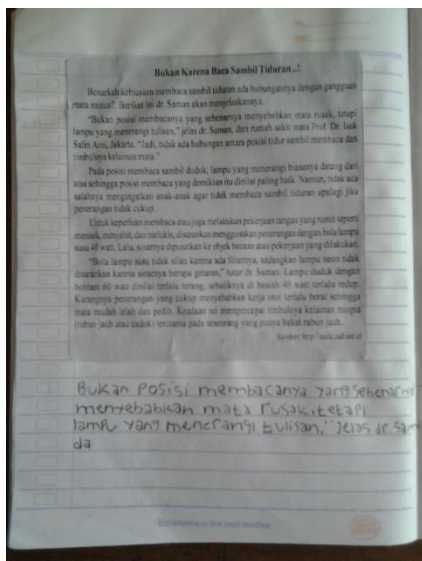 Bukan Karena Baca Sambil Tiduran..!
Benarkah kebiasaan membaca sambil tiduran ada hubungannya dengan gangguan
mata minus? Berikut ini dr. Saman akan menjelaskannya.
"Bukan posisi membacanya yang sebenarnya menyebabkan mata rusak, tetapi
lampu yang menerangi tulisan," jelas dr. Saman, dari rumah sakit mata Prof. Dr. Isak
Salim Aini, Jakarta. "Jadi, tidak ada hubungan antara posisi tidur sambil membaca dan
timbulnya kelainan mata."
Pada posisi membaca sambil duduk, lampu yang menerangi biasanya datang dari
atas sehingga posisi membaca yang demikian itu dinilai paling baik. Namun, tidak ada
salahnya mengingatkan anak-anak agar tidak membaca sambil tiduran apalagi jika
penerangan tidak cukup.
Untuk keperluan membaca atau juga melakukan pekerjaan tangan yang rumit seperti
menisik, menjahit, dan melukis, disarankan menggunakan penerangan dengan bola lampu
susu 40 watt. Lalu, sinarnya dipusatkan ke objek bacaan atau pekerjaan yang dilakukan.
"Bola lampu susu tidak silau karena ada filternya, sedangkan lampu neon tidak
disarankan karena sinarnya berupa getaran," tutur dr. Saman. Lampu duduk dengan
bohlam 60 watt dinilai terlalu terang, sebaliknya di bawah 40 watt terlalu redup.
Kurangnya penerangan yang cukup menyebabkan kerja otot terlalu berat sehingga
mata mudah lelah dan pedih. Keadaan ini mempercepat timbulnya kelainan miopia
(rabun jauh atau cadok) terutama pada seseorang yang punya bakat rabun jauh.
Sumber: http://
Bukan Posisi membacanya yang sebenarny
menyebabkan mata rusak, tetapi
lampu yang menerangi tulisan," Jelas dr. Sam
da
Experience is the best teacher